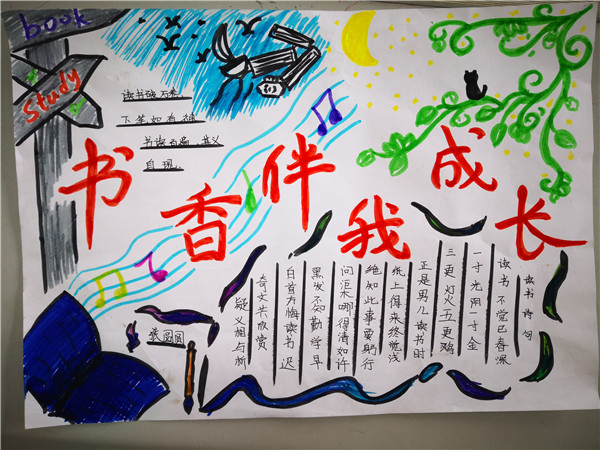 book
Study
读书破万卷
下笔如有神
书读百遍,其义
自现.
书香伴我成长
读书诗句
读书不觉已春深
一寸光阴一寸金
三更灯火五更鸡
正是男儿读书时
纸上得来终觉浅
绝知此事要躬行
问渠哪得清如许
黑发不知勤学早
白首方悔读书迟
奇文共欣赏
疑义相与析
圆圆